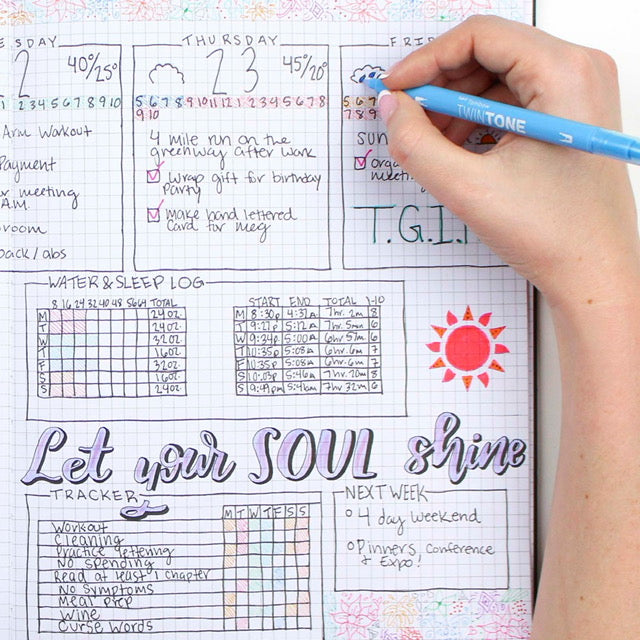 ESDAY
THURSDAY
FRI
2
40°/25°
23
45°/20°
1 2 3 4 5 6 7 8 9 10
5 6 7 8 9 10 11 12 1 2 3 4 5 6 7 8
9 10
5 6 7
7 8 9
Arm Workout
Payment
meeting
A.M.
room
back/abs
4 mile run on the
greenway after work
Wrap gift for birthday
party
Make hand lettered
card for meg
SUN
orga
meeti
T.G.I.F
TWINTONE
WATER & SLEEP LOG
8 16 24 32 40 48 56 64 TOTAL
M 24oz.
T 24oz.
W 32oz
T 16oz.
F 32oz
S 16oz.
S 24oz.
START END TOTAL 1-10
M 8:30p 4:32a 7hr. 2m 8
T 9:27p 5:12a 7hr. 5min 6
W 9:24p 5:00a 6hr 51m 6
T 10:35p 5:08a 6hr. 6m 7
F 10:35p 5:08a 6hr. 6m 7
S 10:03p 5:46a 7hr. 20m 8
S 9:49pm 5:46am 7hr 32m 6
Let your SOUL shine
TRACKER
M T W T F S S
Workout
Cleaning
Practice lettering
No spending
Read at least 1 chapter
No symptoms
Meal prep
Wine
Curse words
NEXT WEEK
4 day weekend
Pinners Conference
& Expo!